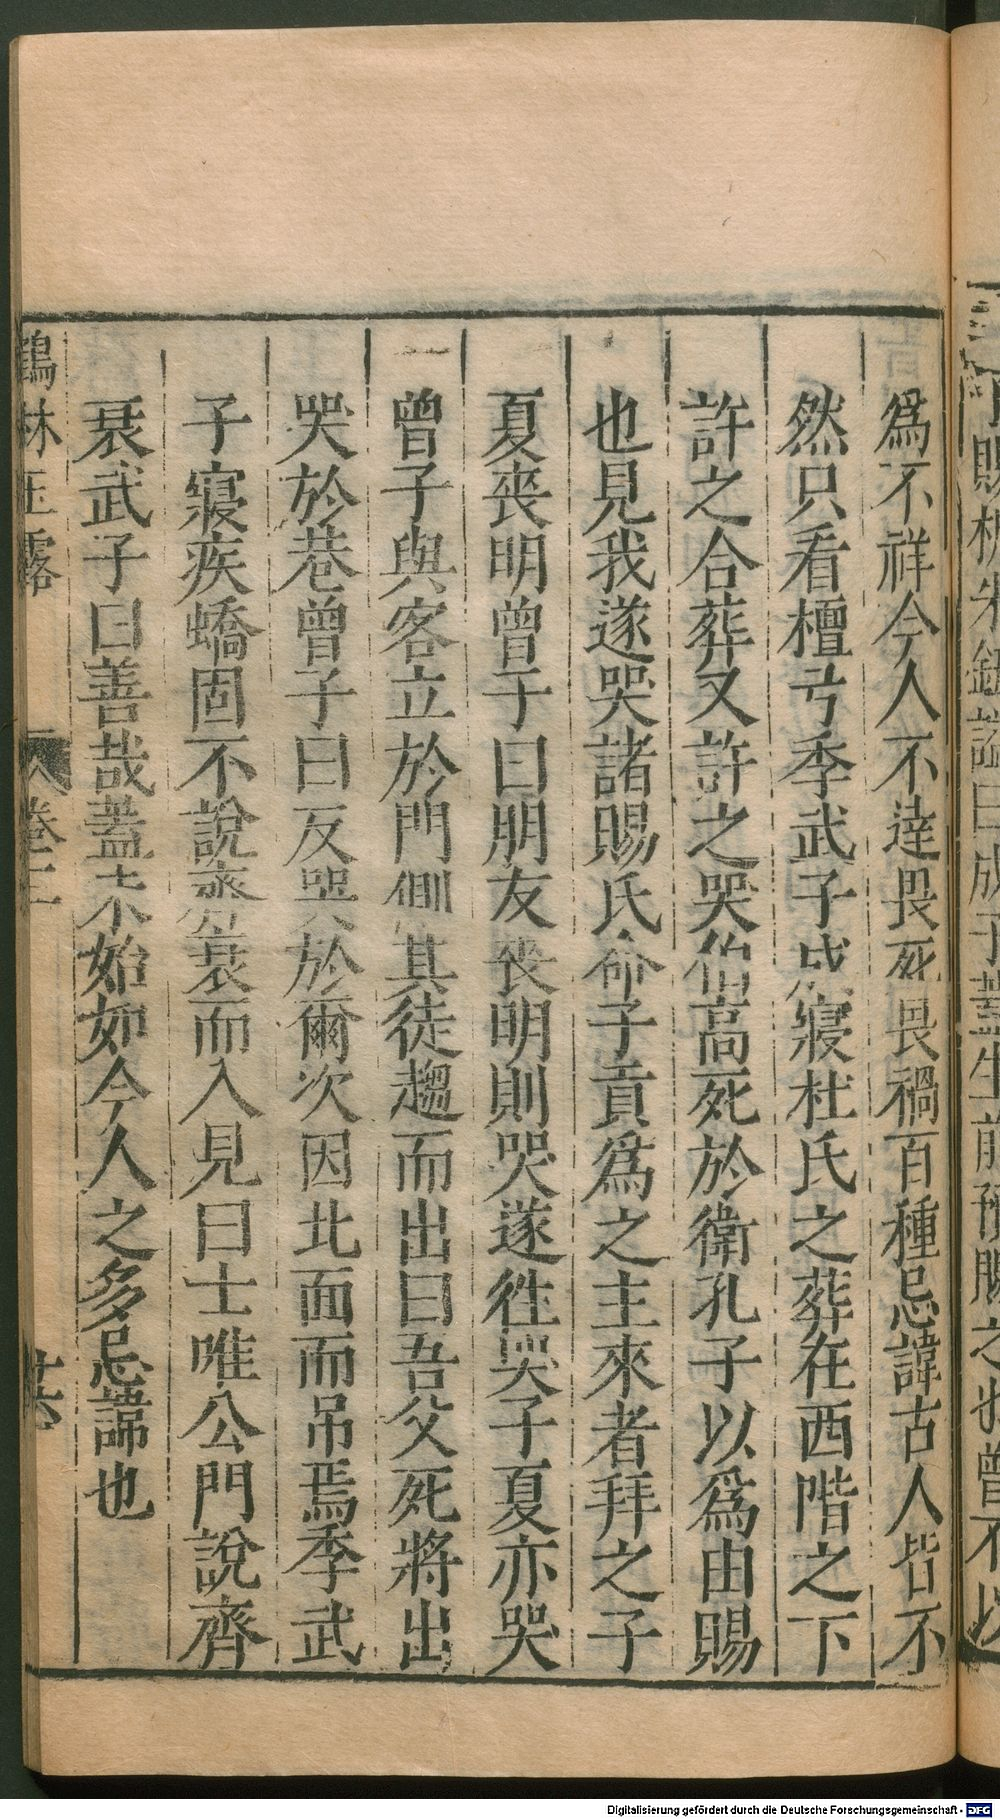 爲不祥今人不達畏死畏禍百種忌諱古人皆不
然只看檀弓季武子成寢杜氏之葬在西階之下
許之合葬又許之哭伯高死於衛孔子以爲由賜
也見我遂哭諸賜氏命子貢爲之主來者拜之子
夏喪明曾子曰朋友喪明則哭遂徃哭子夏亦哭
曾子與客立於門側其徒趨而出曰吾父死將出
哭於巷曾子曰反哭於爾次因北面而吊焉季武
子寢疾蟜固不說齊衰而入見曰士唯公門說齊
衰武子曰善哉蓋未始如今人之多忌諦也
鶴林玉露 卷三 廿六
Digitalisierung gefördert durch die Deutsche Forschungsgemeinschaft - DFG